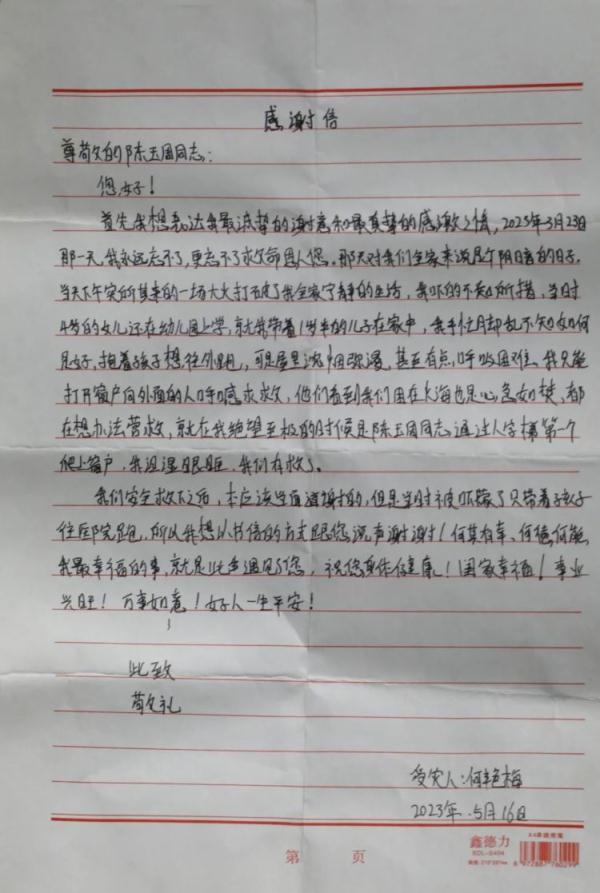 感谢信
尊敬的陈玉国同志:
您好!
首先我想表达我最诚挚的谢意和最真挚的感激之情,2023年3月23日
那一天,我永远忘不了,更忘不了救命恩人您。那天对我们全家来说是个阴暗的日子,
当天下午突所其来的一场大火打破了我全家宁静的生活,我吓的不知所措,当时
4岁的女儿还在幼儿园上学,就我带着1岁半的儿子在家中,我手忙脚乱不知如何
是好,抱着孩子想往外跑,可是屋里浓烟弥漫,甚至有点呼吸困难。我只能
打开窗户向外面的人呼喊求救,他们看到我们困在火海也是心急如焚,都
在想办法营救,就在我绝望至极的时候是陈玉国同志通过人字梯第一个
爬上窗户,我没湿眼眶,我们有救了。
我们安全救下之后,本应该当面道谢的,但是当时被吓懵了只带着孩子
往医院跑,所以我想以书信的方式跟您说声谢谢!何其有幸、何德何能
我最幸福的事,就是此生遇见了您,祝您身体健康!阖家幸福!事业
兴旺!万事如意!好人一生平安!
此致
敬礼
受灾人:何艳梅
2023年.5月16日
鑫德力
KDL-S404
第 页